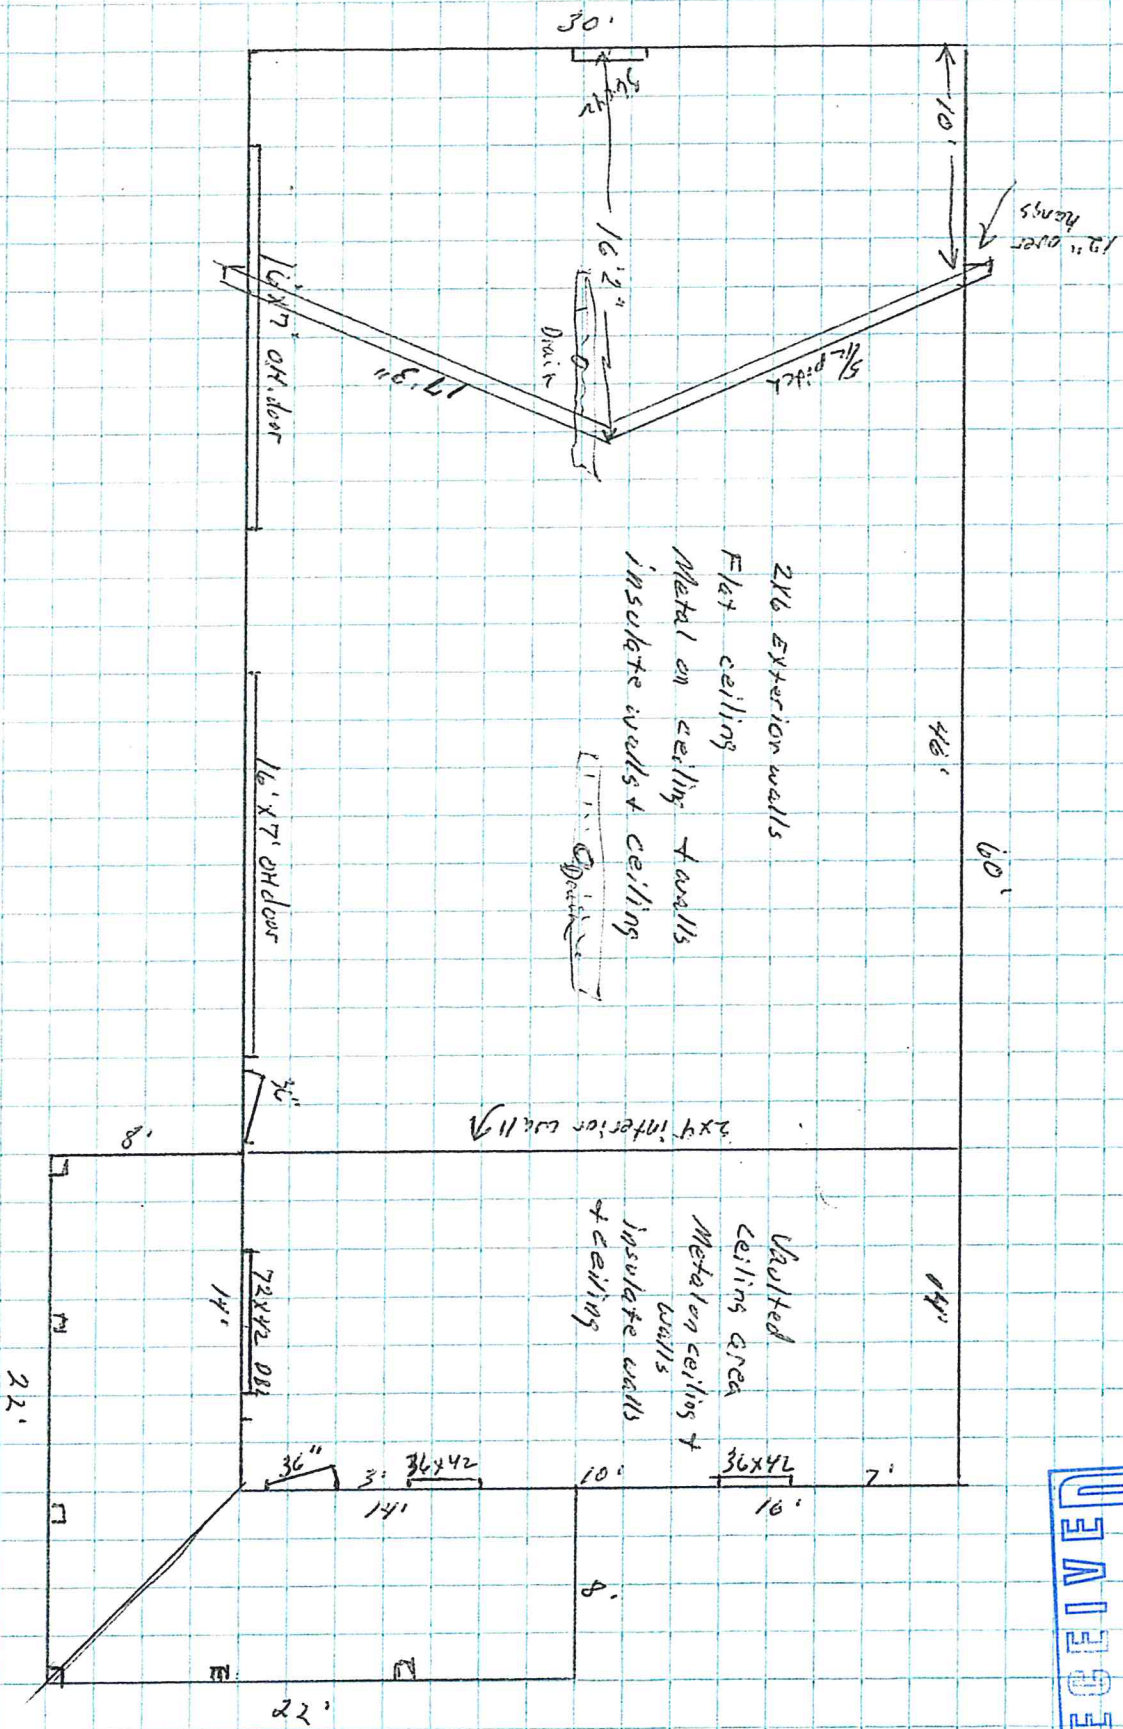 30'
36x42
10'
12" over
hangs
16'2"
5/12 pitch
17'3"
Drain
16'x7' OH. door
2x6 Exterior walls
Flat ceiling
Metal on ceiling + walls
insulate walls + ceiling
46'
60'
Drain
16'x7' OH door
36"
2x4 interior wall
8'
Vaulted
ceiling area
Metal on ceiling +
walls
insulate walls
+ ceiling
14'
72x42 DBL
14'
36"
3'
36x42
10'
36x42
7'
14'
16'
8'
22'
22'